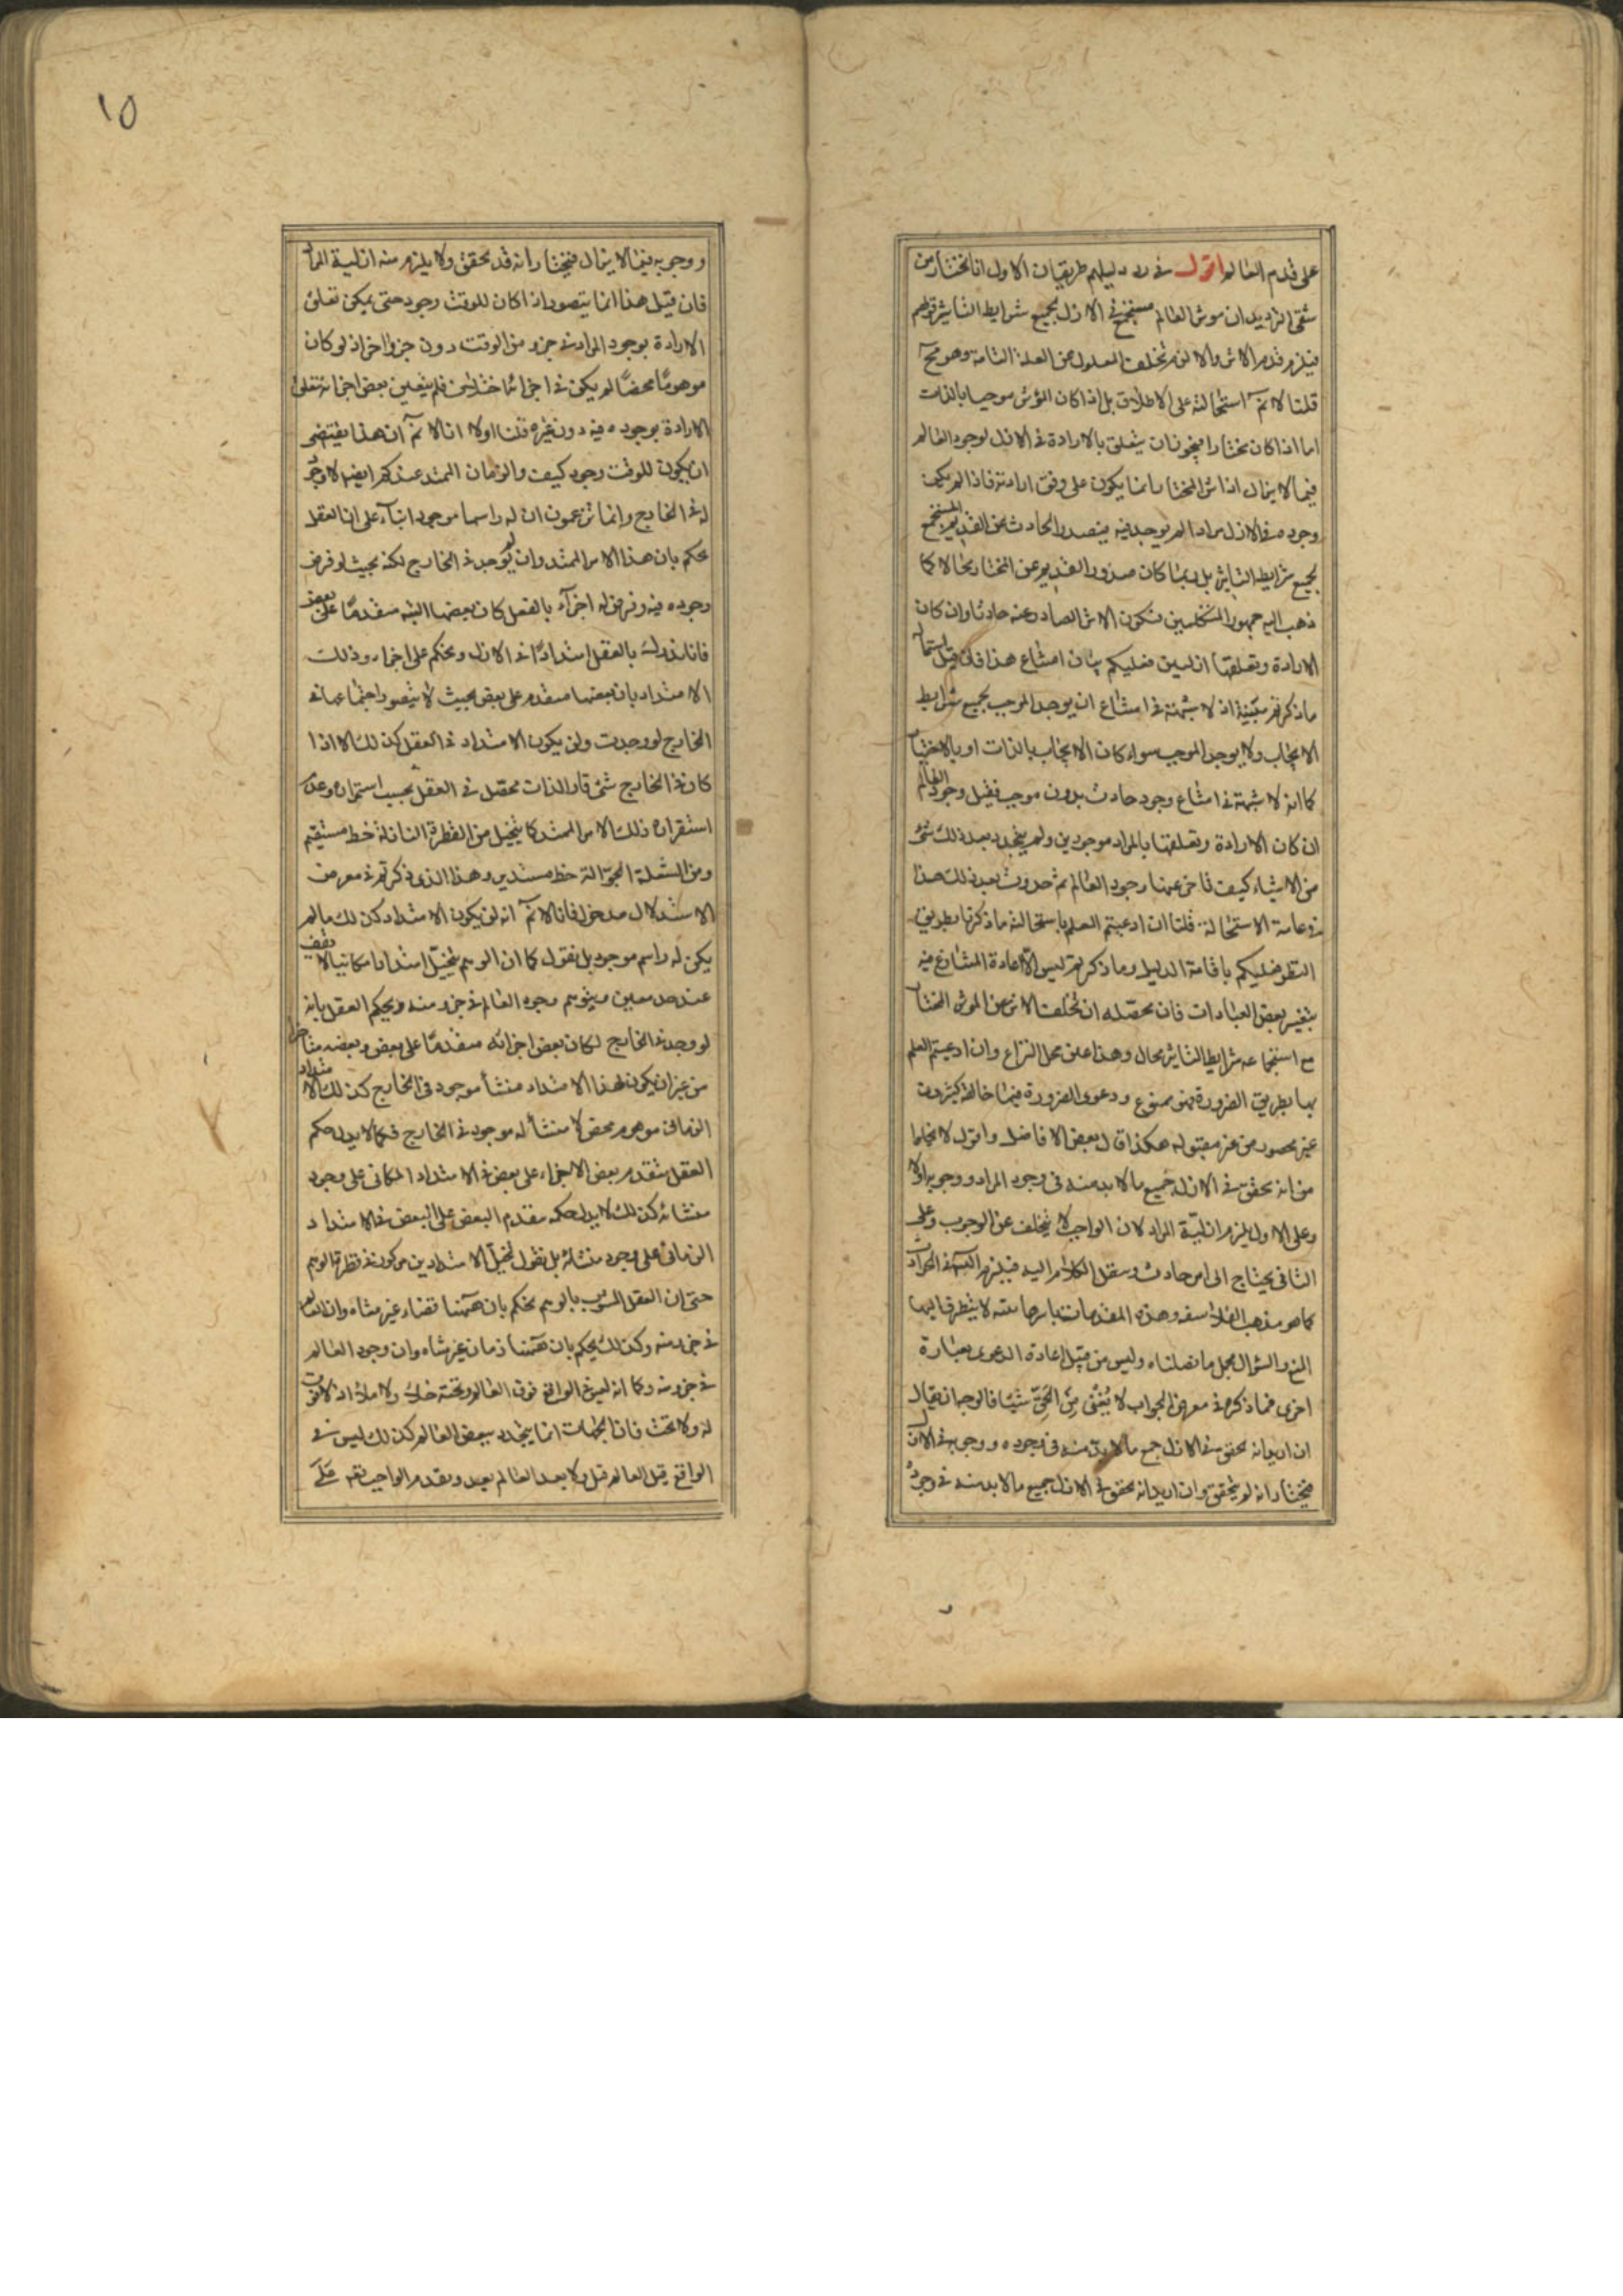 على قدم العالم اقول في رد دليلهم طريقان الاول انا نختار من
شقى الترديد ان موثر العالم مستجمع في الازل لجميع شرايط التاثير قولهم
فيلزم قدم الاثر والا لزم تخلف المعلول عن العلة التامة وهو مح
قلنا لا نم استحالته على الاطلاق بل اذا كان المؤثر موجبا بالذات
اما اذا كان مختارا فيجوز ان يتعلق بالارادة في الازل لوجود العالم
فيما لا يزال اذ اثر المختار انما يكون على وفق ارادته فاذا لم يكن
وجوده في الازل مرادا لم يوجد فيه فيصدر الحادث عن القديم المستجمع
لجميع شرايط التاثير بل ربما كان صدور القديم عن المختار محالا كما
ذهب اليه جمهور المتكلمين فيكون الاثر الصادر عنه حادثا وان كان
الارادة وتعلقها ازليين فعليكم بيان امتناع هذا فان قيل استحالة
ما ذكرتم بينة اذ لا شبهة في امتناع ان يوجد الموجب بجميع شرايط
الايجاب ولا يوجد الموجب سواء كان الايجاب بالذات او بالاختيار
كما انه لا شبهة في امتناع وجود حادث بدون موجب فقبل وجود العالم
ان كان الارادة وتعلقها بالمراد موجودين ولم يتجدد بعد ذلك شئ
من الاشياء كيف تاخر عنها وجود العالم ثم حدوث بعد ذلك هذا
في غاية الاستحالة قلنا ان ادعيتم العلم باستحالة ما ذكرنا بطريق
النظر فعليكم باقامة الدليل وما ذكرتم ليس الا اعادة المتنازع فيه
بتغيير بعض العبارات فان محصله ان تخلف الاثر عن الموثر المختار
مع استجماعه شرايط التاثير محال وهذا عين محل النزاع وان ادعيتم العلم
بها بطريق الضرورة فهو ممنوع ودعوى الضرورة فيما خالفه كثيرون
غير محصور من غير مقبوله هكذا قال بعض الافاضل واقول لا يخلوا
من انه تحقق في الازل جميع ما لا بد منه في وجود المراد ووجوبه اولا
وعلى الاول يلزم ازلية المراد لان الواجب لا يتخلف عن الوجوب وعلى
الثاني يحتاج الى امر حادث وينقل الكلام اليه فيلزم التس في الحوادث
كما هو مذهب الفلاسفه وهذه المقدمات باسرها بينه لا يتطرق اليها
المنع والسؤال مجمل ما فصلناه وليس من قبيل اعادة الدعوى بعبارة
اخرى فما ذكره في معرض الجواب لا يُغنى من الحق شيئا فالوجه ان يقال
ان اريد انه تحقق في الازل جميع ما لا بد منه في وجوده ووجوبه في الازل
فيختار انه لم يتحقق وان اريد انه تحقق في الازل جميع ما لا بد منه في وجوده
ووجوبه فيما لا يزال فيختار انه قد تحقق ولا يلزم منه ازلية المراد
فان قيل هذا انما يتصور اذا كان للوقت وجود حتى يمكن تعلق
الارادة بوجود المراد في جزء من الوقت دون جزء اخر اذ لو كان
موهوما محضا لم يكن في اجزائه اختلاف فلم يتعين بعض اجزائه تتعلق
الارادة بوجوده فيه دون غيره قلنا اولا انا لا نم ان هذا يقتضى
ان يكون للوقت وجود كيف والزمان الممتد عندكم ايضا لا وجود
له في الخارج وانما تزعمون ان له راسما موجودا بناء على ان العقل
يحكم بان هذا الامر الممتد وان لم يوجد في الخارج لكنه بحيث لو فرض
وجوده فيه وفرض له اجزاء بالفعل كان بعضها البته متقدما على بعض
فانا ندرك بالعقل امتدادا في الازل ونحكم على اجزاء ذلك
الامتداد بان بعضها متقدم على بعض بحيث لا يتصور اجتماعها في
الخارج لو وجدت ولن يكون الامتداد في العقل كذلك الا اذا
كان في الخارج شئ قار الذات محصل في العقل بحسب استمراره وعدم
استقراره ذلك الامر الممتد كما يتخيل من القطرة النازلة خط مستقيم
ومن الشعلة الجوالة خط مستدير وهذا الذي ذكرتم في معرض
الاستدلال مدخول فانا لا نم انه لن يكون الامتداد كذلك ما لم
يكن له راسم موجود بل نقول كما ان الوهم يتخيل امتدادا مكانيا لا يقف
عند حد معين ويتوهم وجود العالم في جزء منه ويحكم العقل بانه
لو وجد في الخارج لكان بعض اجزائه متقدما على بعض وبعضه متاخرا
من غير ان يكون لهذا الامتداد منشأ موجود في الخارج كذلك الامتداد
الزماني موهوم محض لا منشأ له موجود في الخارج فكما لا يدل حكم
العقل بتقدم بعض الاجزاء على بعض في الامتداد المكاني على وجود
منشائه كذلك لا يدل حكمه بتقدم البعض على البعض في الامتداد
الزماني على وجود منشائه بل نقول تخيل الامتدادين مركوز في فطرة الوهم
حتى ان العقل المشوب بالوهم يحكم بان ههنا فضاء غير متناه وان العالم
في جزء منه وكذلك يحكم بان ههنا زمان غير متناه وان وجود العالم
في جزء منه وكما انه ليس في الواقع فوق العالم وتحته خلاء ولا ملاء اذ لا فوق
له ولا تحت فان الجهات انما يتحدد ببعض العالم كذلك ليس في
الواقع قبل العالم قبل ولا بعد العالم بعد وتقدم الواجب تعالى على
١٥